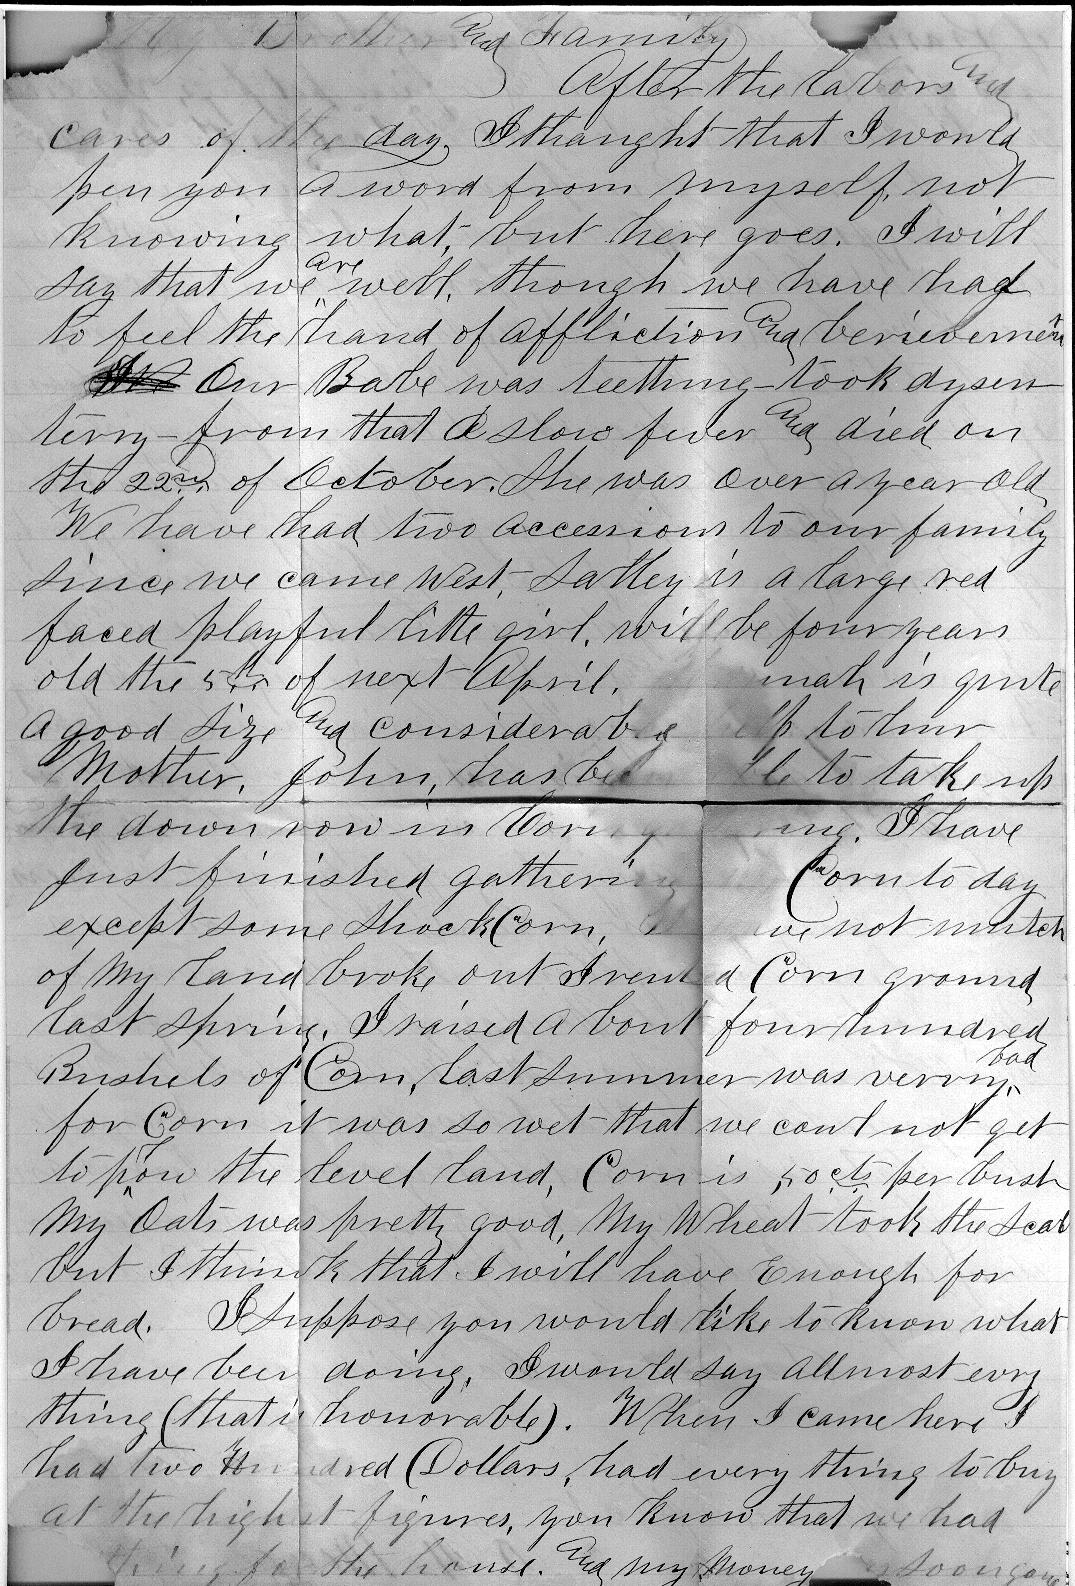 My Brother and Family
After the labors and
cares of the day, I thaught that I would
pen you a word from myself, not
knowing what, but here goes. I will
say that we are well, though we have had
to feel the hand of affliction and berievement
Our Babe was teething - took dysen
terry - from that a slow fever and died on
the 22nd of October. She was over a year old
We have had two accessions to our family
since we came West, Salley is a large red
faced playful little girl, will be four years
old the 5th of next April. mah is quite
a good size and considerable to hur
Mother, John, has be to take up
the down row in Corn I have
just finished gathering Corn to day
except some shock Corn, not mutch
of my land broke out I rented Corn ground
last spring. I raised about four hundred
Bushels of Corn, last summer was verry bad
for Corn it was so wet that we coul not get
to plow the level land, Corn is 50 cts per bush
My Oats was pretty good, My Wheat took the Scab
but I think that I will have Enough for
bread. I suppose you would like to know what
I have been doing, I would say allmost evry
thing (that is honorable). When I came here I
had two Hundred Dollars, had every thing to buy
at the highest figures, you know that we had
thing for the house. And my money soon gone